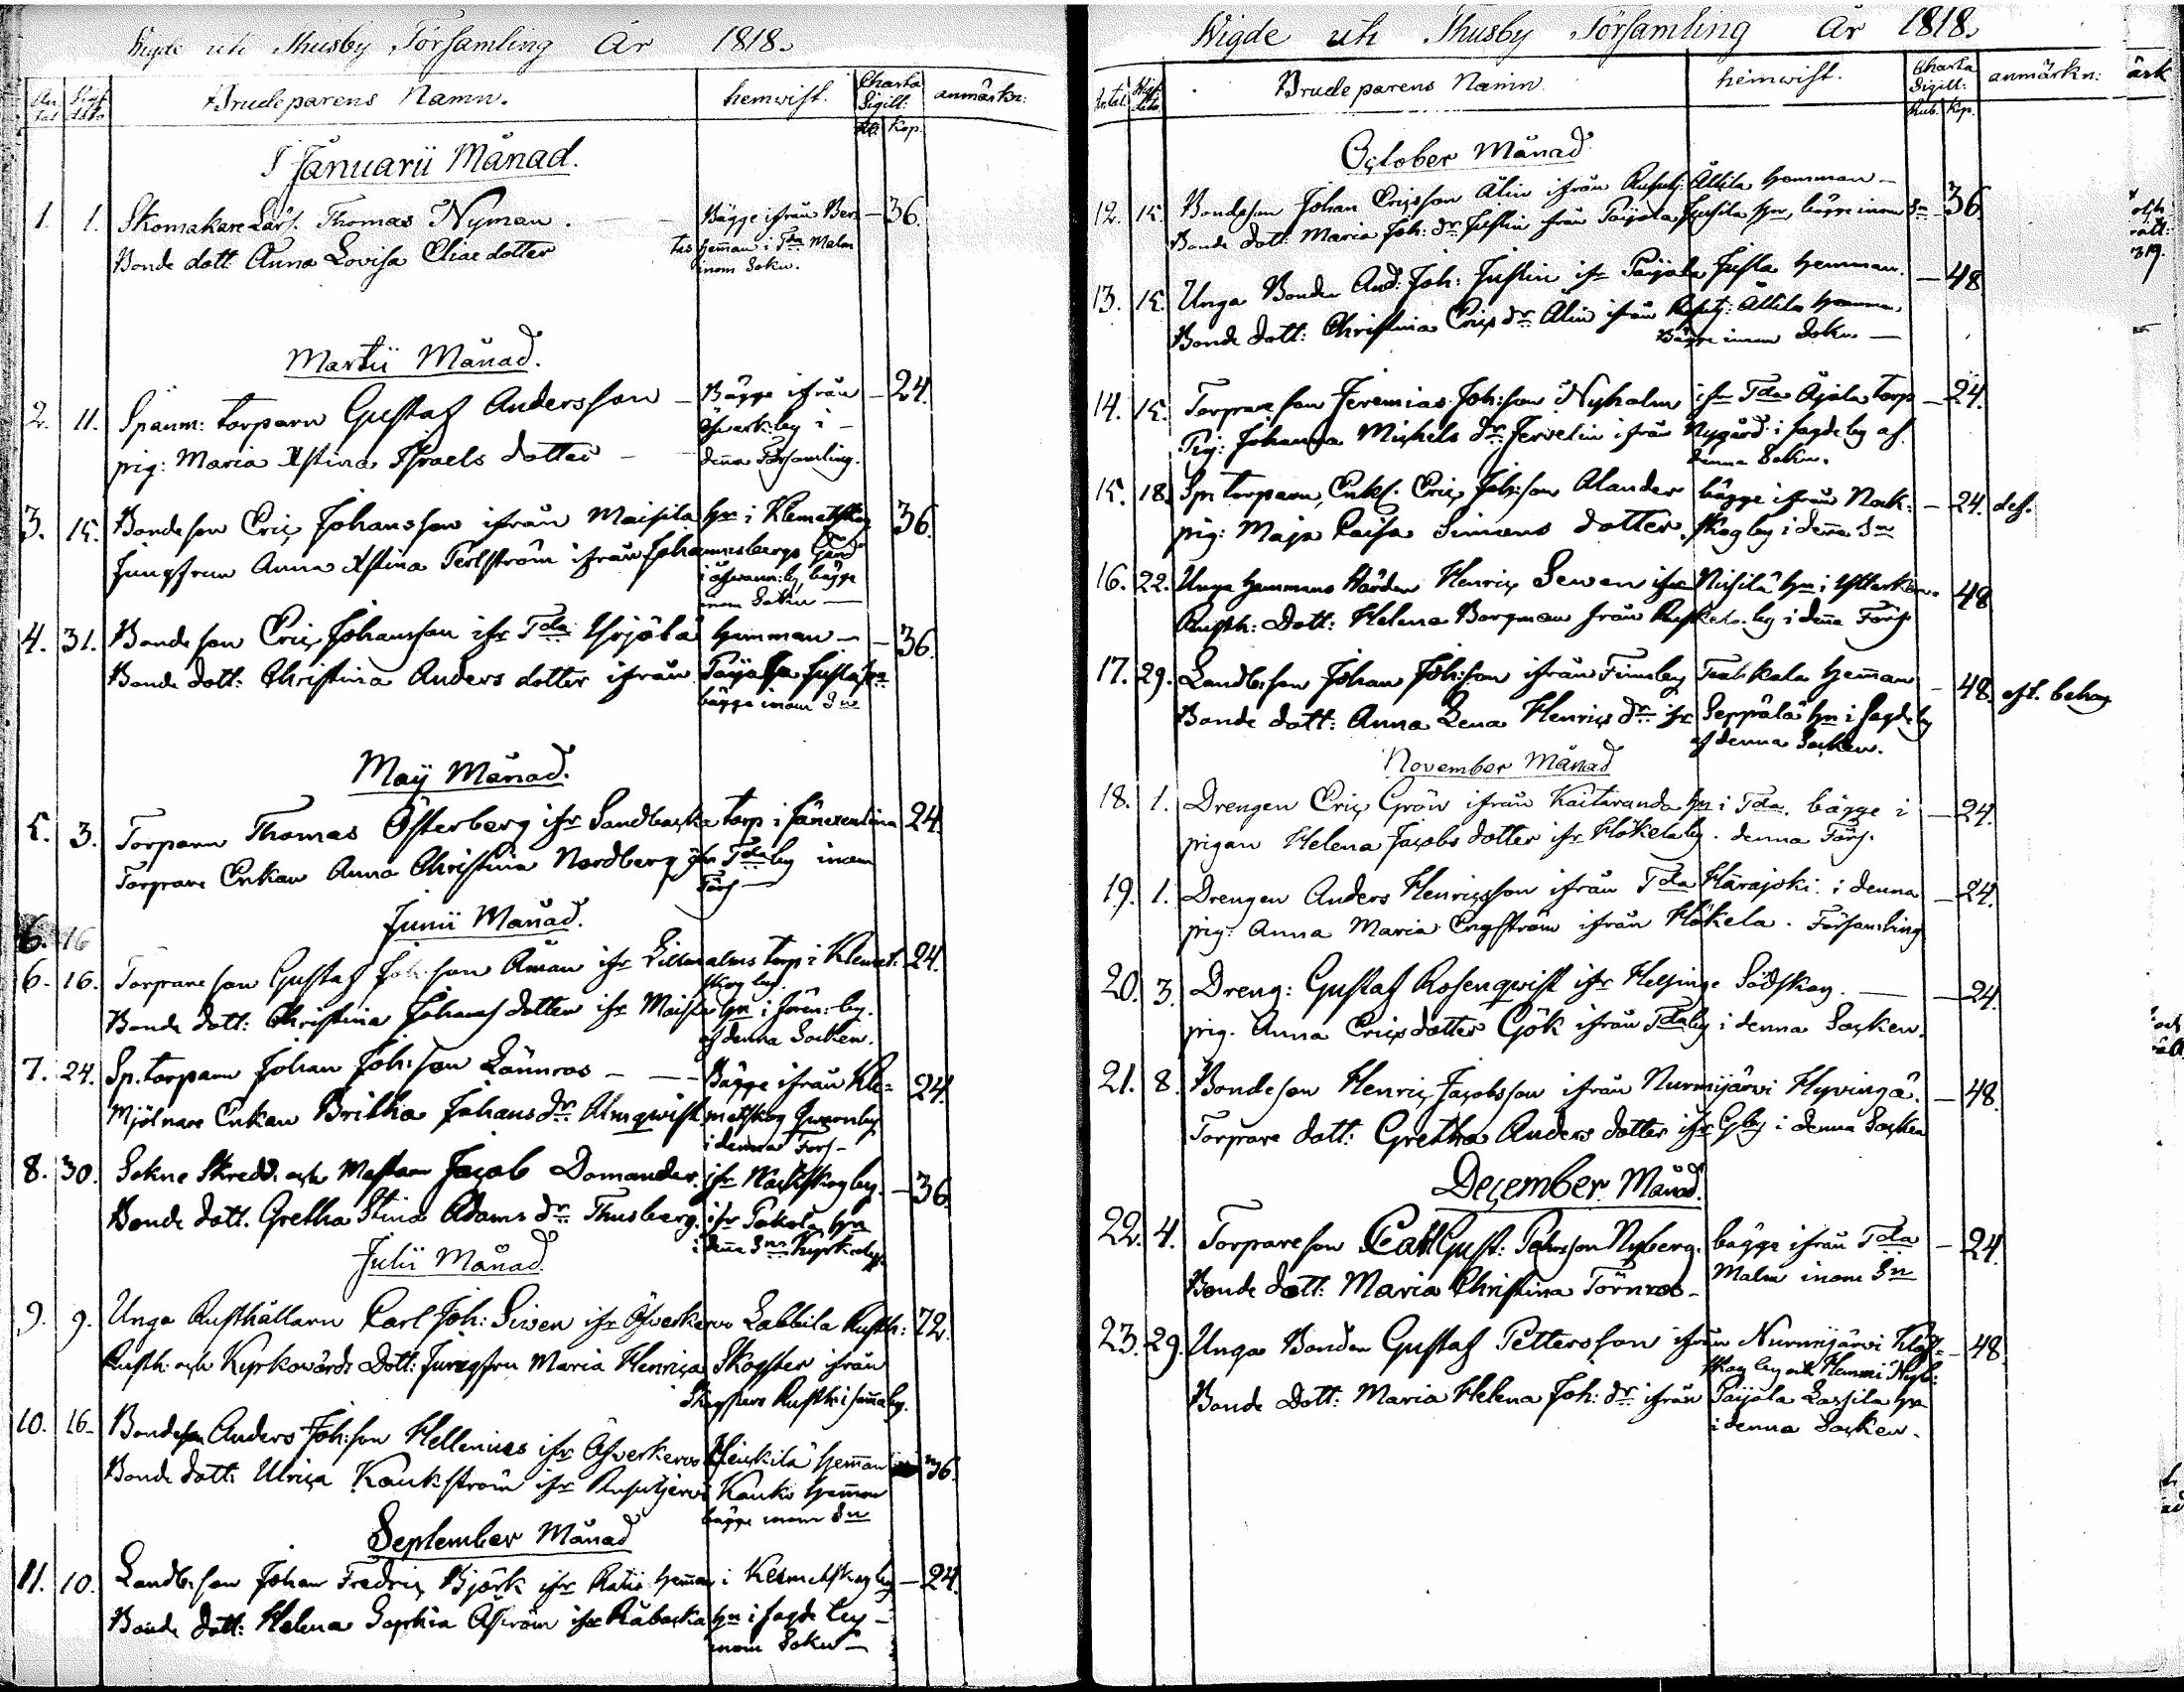 Wigde uti Thusby Församling År 1818.
An tal Vigs dato Brudeparens Namn. hemvist. Charta Sigill: anmärkn:
Kop.
I Januarii Månad.
1. 1. Skomakare Lärl. Thomas Nyman. Bägge ifrån Ber- 36.
Bonde dott: Anna Lovisa Eliae dotter tas hem̄an i Tda Malm
inom Sokn.
Martii Månad.
2. 11. Spanm: torparn Gustaf Andersson Bägge ifrån 24.
pig: Maria Xstina Israels dotter by i
denna Församling.
3. 15. Bondeson Eric Johansson ifrån Maisila hn i Klemetskog 36.
Jungfrun Anna Xstina Terlström ifrån Johannisbergs Gård
by, bägge
inom Sokn
4. 31. Bondeson Eric Johansson ifr Tda Yrjölä Hemman 36.
Bonde dott: Christina Anders dotter ifrån Paijala Jusla hn
bägge inom Sn
Maij Månad.
5. 3. Torparn Thomas Österberg ifr Sandbacka torp i 24.
Torpare Enkan Anna Christina Nordberg ifr Tda by inom
Förs
Junii Månad.
6. 16
6. 16. Torpare son Gustaf Joh:son Åman ifr Lillmalms torp i Klemet- 24.
skog by.
Bonde dott: Christina Johans dotter ifr hn i by.
af denna Socken.
7. 24. Sp. torparn Johan Joh:son Lönnros Bägge ifrån Kle- 24.
Mjölnare Enkan Britha Johans dr Almqwist metskog by
i denna Förs
8. 30. Sokne Skredd: och Mästaren Jacob Domander. ifr Nackskog by. 36.
Bonde dott. Gretha Stina Adams dr Thusberg. ifr hn
i den̄a Sns Kyrkoby.
Julii Månad.
9. 9. Unga Rusthållarn Carl Joh: Siven ifr Labbila Rusth: 72.
Rusth: och Kyrkovärds Dott: Jungfru Maria Henrica Skogster ifrån
Rusth: i sam̄a by.
10. 16. Bondeson Anders Joh:son Hellenius ifr Heickilä hem̄an 36.
Bonde dott: Ulrica Kaukström ifr Rusutjervi Kauko hem̄an
bägge inom Sn
September Månad
11. 10. Landb:son Johan Fredric Björk ifr hem̄an i Klemetskog by 24.
Bonde dott: Helena Sophia Åström ifr Råbacka hn i by
inom Sokn
Wigde uti Thusby Församling År 1818.
Antal Vigs. dato. Brudeparens Namn. hemvist. Charta Sigill: anmärkn:
Rub. Kop.
October Månad
12. 15. Bondeson Johan Ericsson Alin ifrån Rusutj: Ållila Hemman 36
Bonde dott: Maria Joh: dr Juslin ifrån Paijala hn, bägge inom Sn
13. 15. Unga Bonden And: Joh: Juslin ifr Paijala Jusla Hemman. 48
Bonde dott: Christina Erics dr Alin ifrån Rusutj: Ållila Hemman,
Bägge inom Sokn
14. 15. Torpare son Jeremias Joh:son Nyholm ifr Tda Äijälä torp 24.
Pig: Johanna Michels dr Fervelin ifrån Nygård i by af
denna Sokn.
15. 18. Sp. torparn, Enkl. Eric Joh:son Alander bägge ifrån Nack- 24.
pig: Maja Caisa Simons dotter. skog by i den̄a Sn
16. 22. Unga Hemmans Wärden Henric Seven ifr Nisilä hn i 48
Rusth: Dott: Helena Borgman ifrån by i den̄a Förs
17. 29. Landb:son Johan Joh:son ifrån Finnby hem̄an 48.
Bonde dott: Anna Lena Henrics dr ifr Seppälä hn i by
af denna Socken.
November Månad
18. 1. Drengen Eric Grön ifrån Kaitaranda hn i Tda. bägge i 24.
pigan Helena Jacobs dotter ifr Hökela by. denna Förs.
19. 1. Drengen Anders Henricsson ifrån Tda Härajoki i denna 24.
pig: Anna Maria Engström ifrån Hökela. Församling
20. 3. Dreng: Gustaf Rosenqwist ifr Helsinge Södskog. 24.
pig. Anna Erics dotter Gök ifrån Tda by i denna Socken.
21. 8. Bondeson Henric Jacobsson ifrån Nurmijärvi Hyvingä. 48.
Torpare dott: Gretha Anders dotter ifr by i denna Socken
December Månad.
22. 4. Torpareson Carl Gust: Nyberg. bägge ifrån Tda 24.
Bonde dott: Maria Christina Törnros Malm inom Sn
23. 29. Unga Bonden Gustaf Pettersson ifrån Nurmijärvi 48.
skog by
Bonde Dott: Maria Helena Joh: dr ifrån Paijala Lassila hn
i denna Socken.